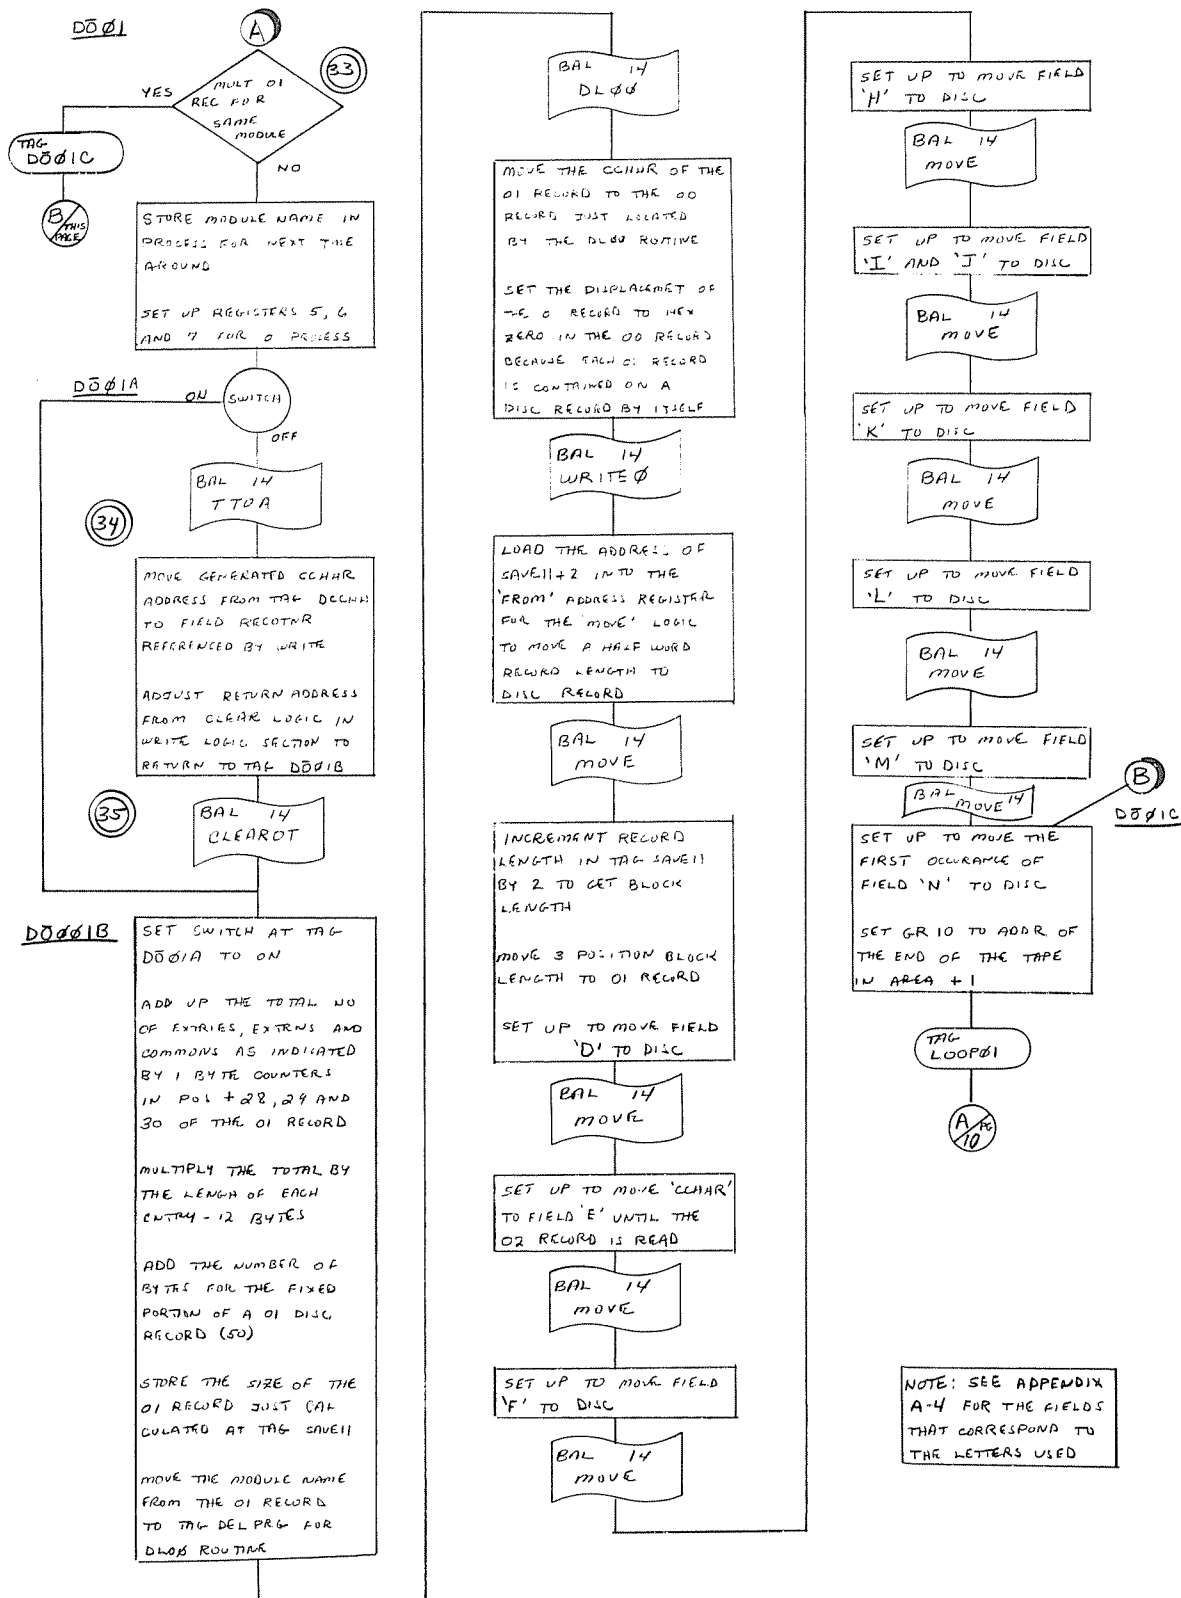 DŌØ1
A
33
MULT 01
REC FOR
SAME
MODULE
YES
NO
TAG
DŌØ1C
B/THIS
PAGE
STORE MODULE NAME IN
PROCESS FOR NEXT TIME
AROUND
SET UP REGISTERS 5, 6
AND 7 FOR 0 PROCESS
DŌØ1A
ON
SWITCH
OFF
BAL 14
TTOA
34
MOVE GENERATED CCHHR
ADDRESS FROM TAG DCCHH
TO FIELD RECOTNR
REFERENCED BY WRITE
ADJUST RETURN ADDRESS
FROM CLEAR LOGIC IN
WRITE LOGIC SECTION TO
RETURN TO TAG DŌØ1B
35
BAL 14
CLEAROT
DŌØØ1B
SET SWITCH AT TAG
DŌØ1A TO ON
ADD UP THE TOTAL NO
OF EXTRIES, EXTRNS AND
COMMONS AS INDICATED
BY 1 BYTE COUNTERS
IN POS +28, 29 AND
30 OF THE 01 RECORD
MULTIPLY THE TOTAL BY
THE LENGH OF EACH
ENTRY - 12 BYTES
ADD THE NUMBER OF
BYTES FOR THE FIXED
PORTION OF A 01 DISC
RECORD (50)
STORE THE SIZE OF THE
01 RECORD JUST CAL
CULATED AT TAG SAVE11
MOVE THE MODULE NAME
FROM THE 01 RECORD
TO TAG DEL PRG FOR
DLOØ ROUTINE
BAL 14
DLØØ
MOVE THE CCHHR OF THE
01 RECORD TO THE 00
RECORD JUST LOCATED
BY THE DLOO ROUTINE
SET THE DISPLACEMET OF
THE 0 RECORD TO HEX
ZERO IN THE 00 RECORD
BECAUSE EACH 01 RECORD
IS CONTAINED ON A
DISC RECORD BY ITSELF
BAL 14
WRITEØ
LOAD THE ADDRESS OF
SAVE11+2 INTO THE
'FROM' ADDRESS REGISTER
FOR THE 'MOVE' LOGIC
TO MOVE A HALF WORD
RECORD LENGTH TO
DISC RECORD
BAL 14
MOVE
INCREMENT RECORD
LENGTH IN TAG SAVE11
BY 2 TO GET BLOCK
LENGTH
MOVE 3 POSITION BLOCK
LENGTH TO 01 RECORD
SET UP TO MOVE FIELD
'D' TO DISC
BAL 14
MOVE
SET UP TO MOVE 'CCHHR'
TO FIELD 'E' UNTIL THE
02 RECORD IS READ
BAL 14
MOVE
SET UP TO MOVE FIELD
'F' TO DISC
BAL 14
MOVE
SET UP TO MOVE FIELD
'H' TO DISC
BAL 14
MOVE
SET UP TO MOVE FIELD
'I' AND 'J' TO DISC
BAL 14
MOVE
SET UP TO MOVE FIELD
'K' TO DISC
BAL 14
MOVE
SET UP TO MOVE FIELD
'L' TO DISC
BAL 14
MOVE
SET UP TO MOVE FIELD
'M' TO DISC
BAL 14
MOVE
B
DŌØ1C
SET UP TO MOVE THE
FIRST OCCURANCE OF
FIELD 'N' TO DISC
SET GR 10 TO ADDR OF
THE END OF THE TAPE
IN AREA + 1
TAG
LOOPØ1
A/PG
10
NOTE: SEE APPENDIX
A-4 FOR THE FIELDS
THAT CORRESPOND TO
THE LETTERS USED